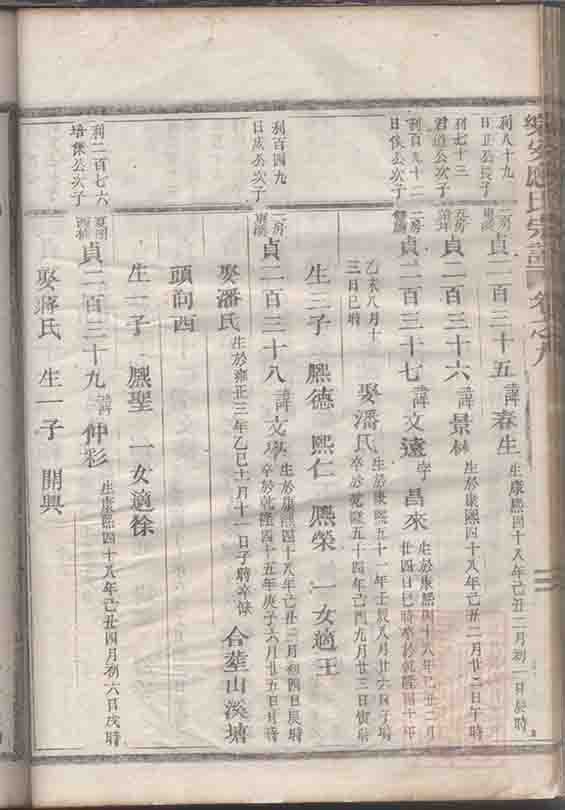 樂安應氏宗譜
利八十九
日正公長子
二房
貞二百三十五 諱春生 生康熙四十八年己丑二月初一日辰時
利七十三
君道公次子
貞二百三十六 諱景林 生於康熙四十八年己丑二月廿二日午時
利百九十二
日俟公次子
二房
貞二百三十七 諱文遠 字昌來 生於康熙四十八年己丑二月
廿四日巳時卒於乾隆四十年
乙亥八月十
三日巳時
娶潘氏 生於康熙五十一年壬辰八月廿六日子時
卒於乾隆五十四年己酉九月廿三日寅時
生三子 熈德 熙仁 熈榮 一女適王
利百四九
日成公次子
二房
貞二百三十八 諱文 生於康熙四十八年己丑三月初四日辰時
卒於乾隆四十五年庚子六月廿五日時
娶潘氏 生於雍正三年乙巳十一月十一日子時卒缺 合塟山溪塘
頭向西
生一子 熈聖 一女適徐
利二百七六
培傑公次子
貞二百三十九 諱仲彩 生康熙四十八年己丑四月初六日戌時
娶蔣氏 生一子 開興